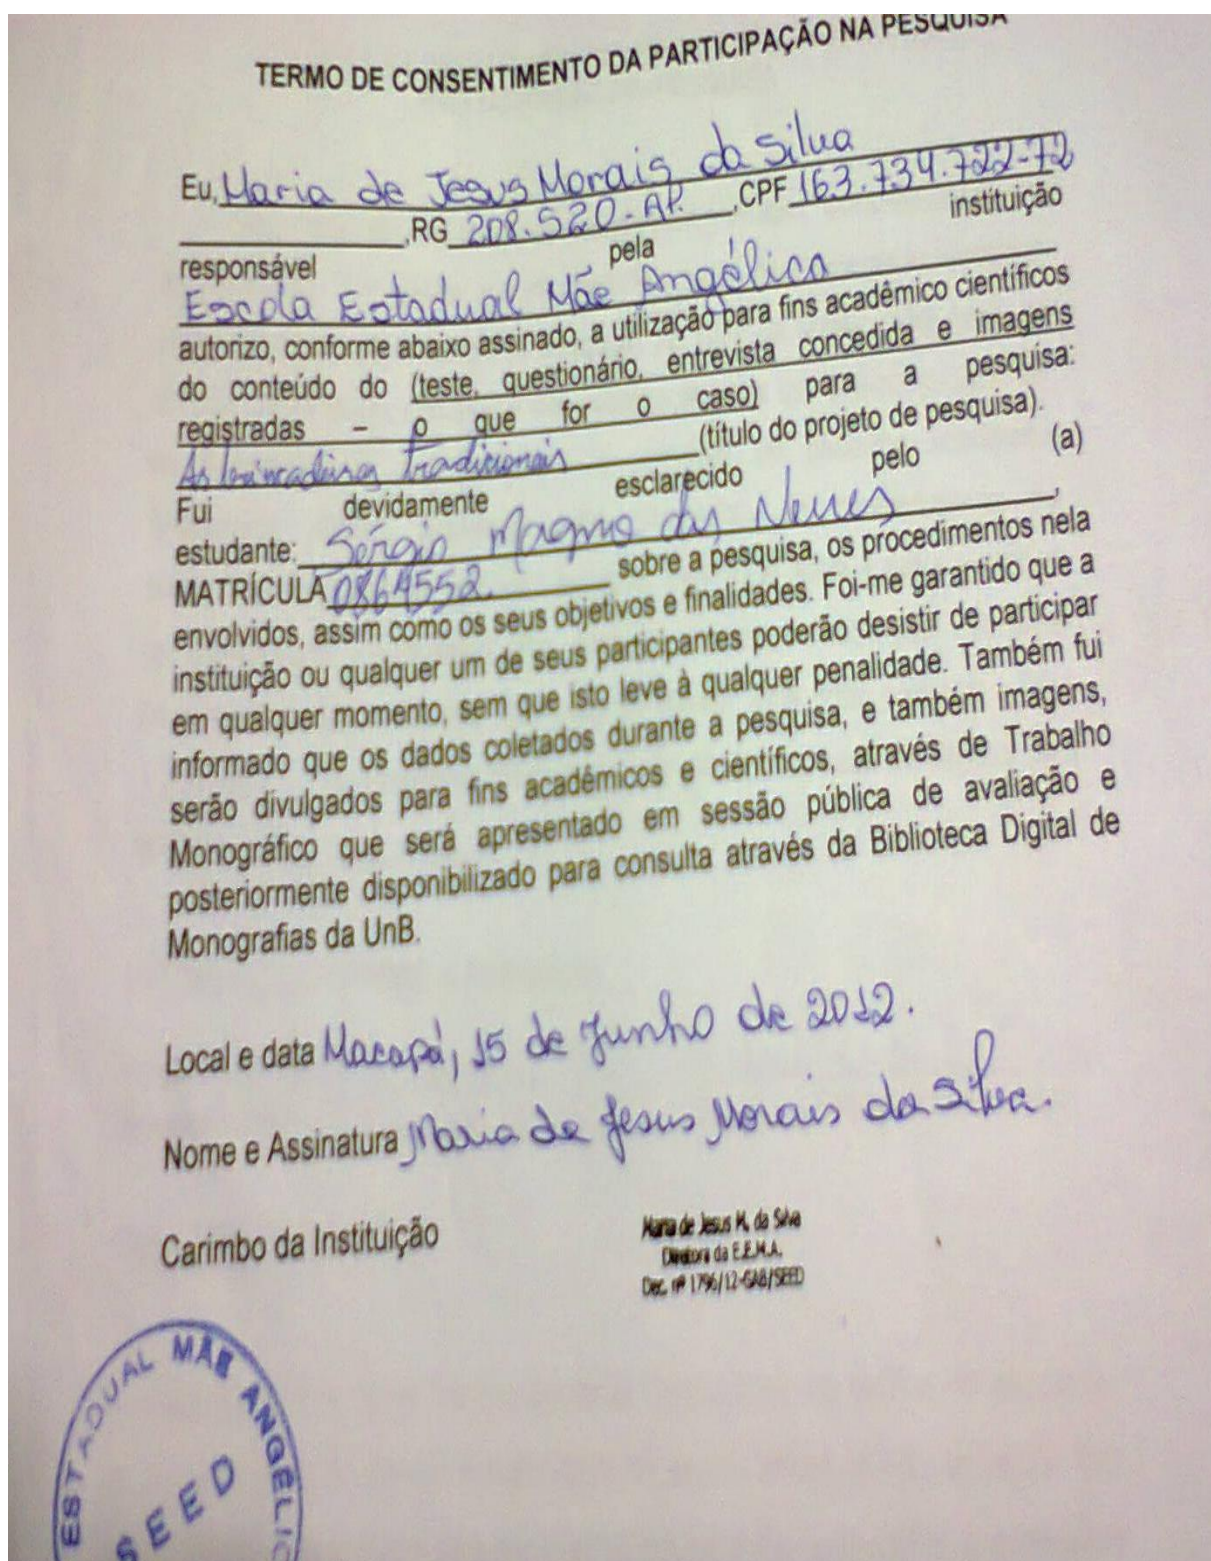 TERMO DE CONSENTIMENTO DA PARTICIPAÇÃO NA PESQUISA
Eu, Maria de Jesus Morais da Silva
,RG 208.520-AP. ,CPF 163.734.722-72
responsável pela instituição
Escola Estadual Mãe Angélica
autorizo, conforme abaixo assinado, a utilização para fins acadêmico científicos
do conteúdo do (teste, questionário, entrevista concedida e imagens
registradas – o que for o caso) para a pesquisa:
As brincadeiras tradicionais (título do projeto de pesquisa).
Fui devidamente esclarecido pelo (a)
estudante: Sérgio Magno das Neves ,
MATRÍCULA 0864552 sobre a pesquisa, os procedimentos nela
envolvidos, assim como os seus objetivos e finalidades. Foi-me garantido que a
instituição ou qualquer um de seus participantes poderão desistir de participar
em qualquer momento, sem que isto leve à qualquer penalidade. Também fui
informado que os dados coletados durante a pesquisa, e também imagens,
serão divulgados para fins acadêmicos e científicos, através de Trabalho
Monográfico que será apresentado em sessão pública de avaliação e
posteriormente disponibilizado para consulta através da Biblioteca Digital de
Monografias da UnB.
Local e data Macapá, 15 de Junho de 2012.
Nome e Assinatura Maria de Jesus Morais da Silva.
Carimbo da Instituição
Maria de Jesus M. da Silva
Diretora da E.E.M.A.
Dec. nº 1796/12-GAB/SEED
ESTADUAL MÃE ANGÉLIC
SEED